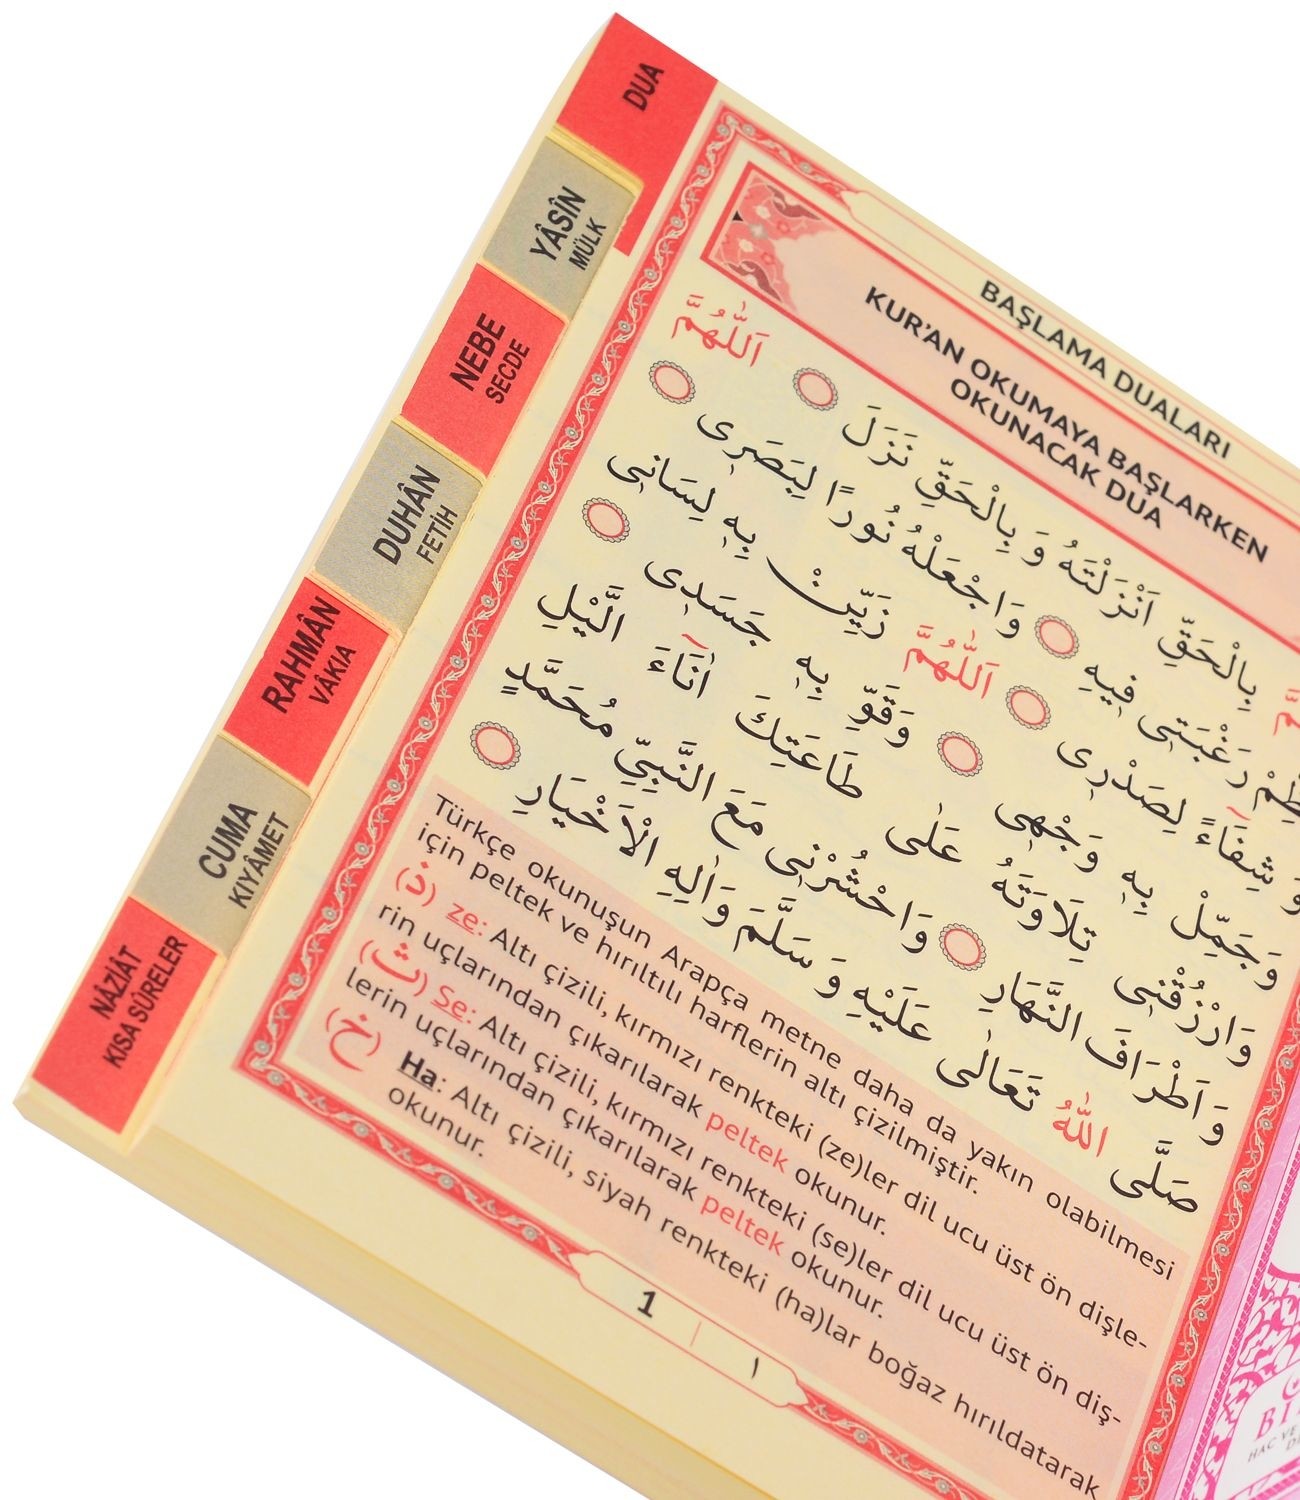 DUA
YÂSÎN
MÜLK
NEBE
SECDE
DUHÂN
FETİH
RAHMÂN
VÂKIA
CUMA
KIYÂMET
NÂZİÂT
KISA SÛRELER
BAŞLAMA DUALARI
KUR'AN OKUMAYA BAŞLARKEN
OKUNACAK DUA
بِالْحَقِّ اَنْزَلْتَهُ وَ بِالْحَقِّ نَزَلَ ۝ اَللّٰهُمَّ
رَغْبَتٖى فٖيهِ ۝ وَاجْعَلْهُ نُورًا لِبَصَرٖى ۝
شِفَآءً لِصَدْرٖى ۝ اَللّٰهُمَّ زَيِّنْ بِهٖ لِسَانٖى
وَجَمِّلْ بِهٖ وَجْهٖى ۝ وَقَوِّ بِهٖ جَسَدٖى ۝
وَارْزُقْنٖى تِلَاوَتَهُ عَلٰى طَاعَتِكَ اٰنَآءَ الَّيْلِ
وَاَطْرَافَ النَّهَارِ ۝ وَاحْشُرْنٖى مَعَ النَّبِيِّ مُحَمَّدٍ
صَلَّى اللّٰهُ تَعَالٰى عَلَيْهِ وَ سَلَّمَ وَاٰلِهِ الْاَخْيَارِ ۝
Türkçe okunuşun Arapça metne daha da yakın olabilmesi
için peltek ve hırıltılı harflerin altı çizilmiştir.
(ذ) ze: Altı çizili, kırmızı renkteki (ze)ler dil ucu üst ön dişle-
rin uçlarından çıkarılarak peltek okunur.
(ث) Se: Altı çizili, kırmızı renkteki (se)ler dil ucu üst ön diş-
lerin uçlarından çıkarılarak peltek okunur.
(خ) Ha: Altı çizili, siyah renkteki (ha)lar boğaz hırıldatarak
okunur.
1 | ١